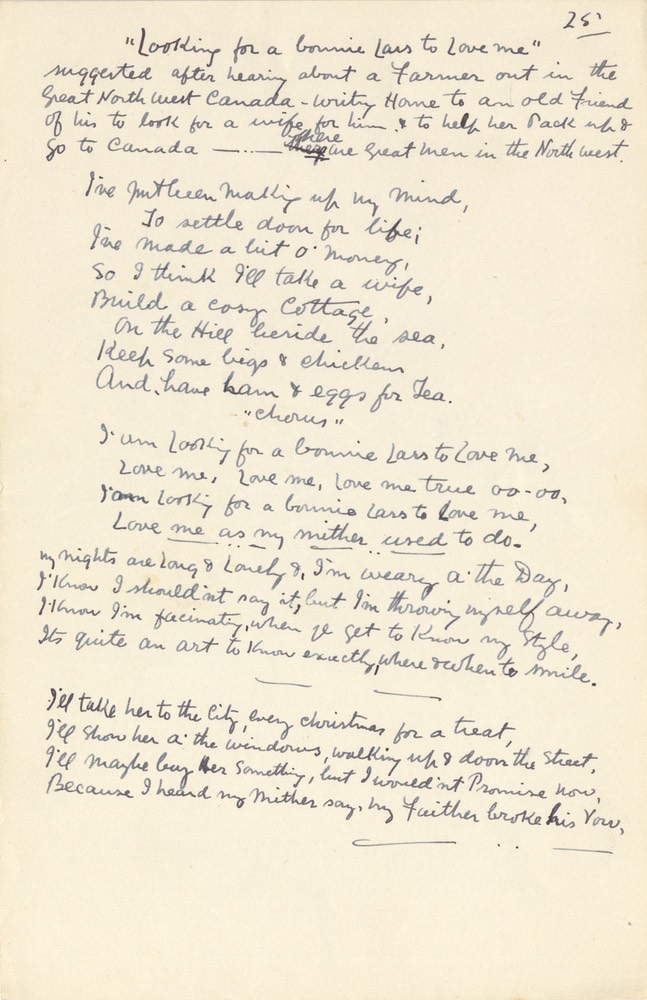 25
"Looking for a bonnie Lass to Love me"
suggested after hearing about a Farmer out in the
Great North West Canada - writing Home to an old Friend
of his to look for a wife for him & to help her Pack up &
Go to Canada — . . — there are Great men in the North West.
I've just been making up my mind,
To settle doon for life;
I've made a bit o' money,
So I think I'll take a wife,
Build a cosy Cottage,
On the Hill beside the sea,
Keep some bigs & chickens
And, have ham & eggs for Tea.
"Chorus"
I am Looking for a bonnie Lass to Love me,
Love me, Love me, Love me true oo-oo,
I am Looking for a bonnie Lass to Love me,
Love me as my mither used to do.
my nights are Long & Lonely &, I'm weary a' the Day,
I Know I should'nt say it, but I'm throwing myself away,
I Know I'm facinating, when ye get to Know my Style,
Its quite an art to Know exactly, where & when to smile.
I'll take her to the City, every christmas for a treat,
I'll show her a' the windows, walking up & doon the Street,
I'll maybe buy Her something, but I would'nt Promise now,
Because I heard my Mither say, my Faither broke his Vow,